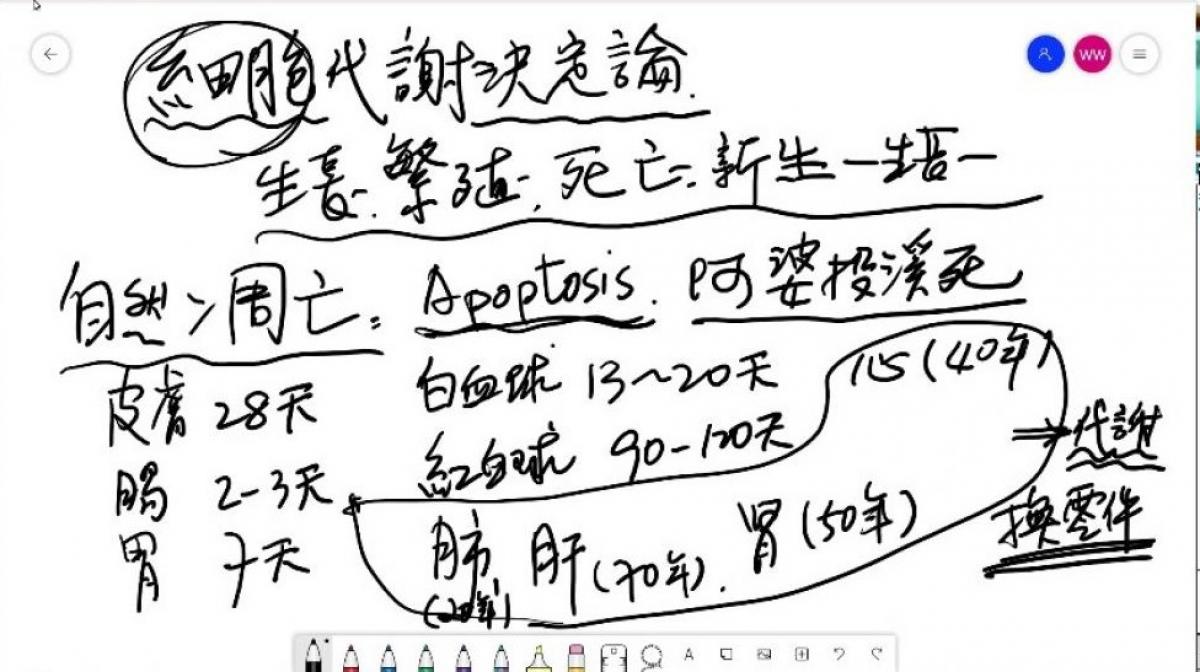 WW
細胞代謝決定論.
生長.繁殖.死亡.新生一生
自然>凋亡: Apoptosis. 阿婆投溪死
皮膚 28天 白血球 13~20天 心(40年)
紅血球 90-120天 ⇒代謝
腸 2-3天 換零件
胃 7天 肺 肝(70年). 腎(50年)
(20年)
A